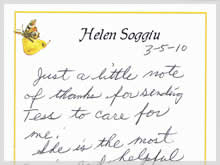 Helen Soggiu
3-5-10
Just a little note
of thanks for sending
Tess to care for
me.
She is the most
helpful